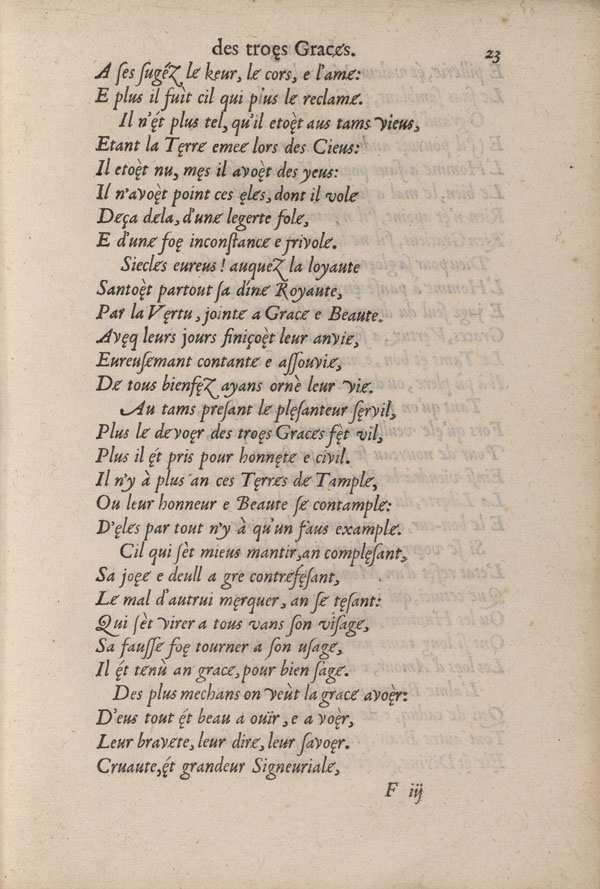 des troęs Graces.
23
A ſes ſugéZ le keur, le cors, e l'ame:
E plus il fuìt cil qui plus le reclame.
Il n'ét plus tel, qu'il etoęt aus tams vieus,
Etant la Tęrre emee lors des Cieus:
Il etoęt nu, męs il avoęt des yeus:
Il n'avoęt point ces ęles, dont il vole
Deça dela, d'une legerte fole,
E d'une foę inconſtance e frivole.
Siecles eureus! auquez la loyaute
Santoęt partout ſa dine Royaute,
Par la Vęrtu, jointe a Grace e Beaute.
Avęq leurs jours finiçoęt leur anvie,
Eureuſemant contante e aſſouvie,
De tous bienfęZ ayans ornè leur vie.
Au tams preſant le plęſanteur ſęrvil,
Plus le devoęr des troęs Graces fęt vil,
Plus il ét pris pour honnęte e civil.
Il n'y à plus an ces Tęrres de Tample,
Ou leur honneur e Beaute ſe contample:
D'ęles par tout n'y à qu'un faus example.
Cil qui ſèt mieus mantir, an complęſant,
Sa joęe e deull a gre contrefęſant,
Le mal d'autrui męrquer, an ſe tęſant:
Qui ſèt virer a tous vans ſon viſage,
Sa fauſſe foę tourner a ſon uſage,
Il ét tenù an grace, pour bien ſage.
Des plus mechans on veùt la grace avoęr:
D'eus tout ét beau a ouïr, e a voęr,
Leur bravete, leur dire, leur ſavoęr.
Cruaute, ét grandeur Signeuriale,
F iij